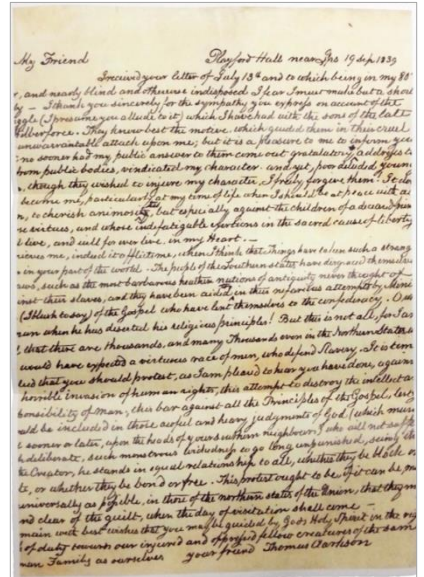 My Friend Playford Hall near Ips 19 Sep. 1839
I received your letter of July 13th and to which being in my 80
, and nearly blind and otherwise indisposed I fear I must make but a short
y – I thank you sincerely for the sympathy you express on account of the
ggle (I presume you allude to it) which I have had with the sons of the late
ilberforce. They know best the motive, which guided them in their cruel
unwarrantable attack upon me; but it is a pleasure to me to inform you
no sooner had my public answer to them come out gratulatory addresses
from public bodies, vindicated my character. and yet, poor deluded youn
, though they wished to injure my character, I freely forgive them! It do
become me, particularly at my time of life when I should be at peace with a
n, to cherish animosity, but especially against the children of a dear
se virtues, and whose indefatigable exertions in the sacred cause of liberty
l live, and will for ever live, in my Heart. –
rieves me, indeed it afflicts me, when I think that Things have taken such a strang
in your part of the world. The people of the Southern states have disgraced themselves
aws, such as the most barbarous heathen nations of antiquity never thought of
inst their slaves, and they have been aided in their nefarious attempts by Mini
(I blush to say) of the Gospel who have lent themselves to the confederacy. O
man when he has deserted his religious principles! But this is not all, for I a
, that there are thousands, and many Thousands even in the Northern States
would have expected a virtuous race of men, who defend Slavery. It is tim
ed that you should protest, as I am pleas'd to hear you have done, again
horrible invasion of human rights, this attempt to destroy the intellect a
ponsibility of man, this bar against all the Principles of the Gospel, lest
uld be includ'd in those awful and heavy judgments of God (which mus
sooner or later, upon the heads of your southern neighbours) who will not suff
h deliberate, such monstrous wickedness to go long unpunished, seeing th
he Creator, he stands in equal relationship to all, whether they be black o
te, or whether they be bond or free. This protest ought to be, if it can be, m
universally as possible, in those of the northern states of the Union, that they m
nd clear of the guilt, when the day of visitation shall come –
main with best wishes that you may be guided by God's Holy Spirit in the
of duty towards our injured and oppressed fellow creatures of the sam
man Family as ourselves your friend Thomas Clarkson